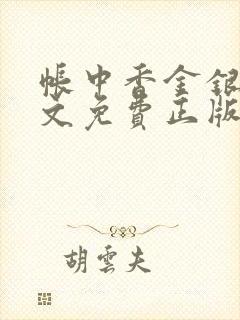 帳中香金銀
文免費正版
胡雲夫